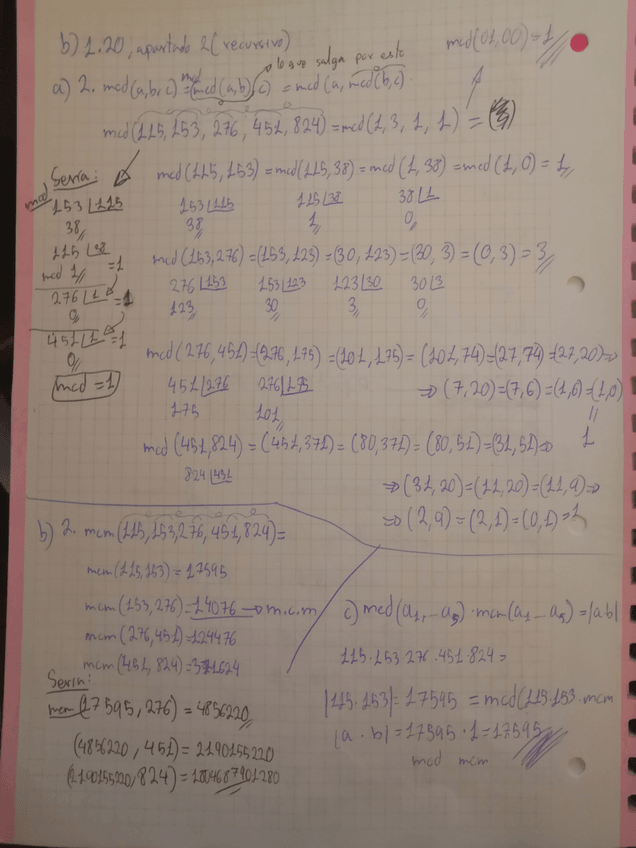 b) 1.20, apartado 2 (recursivo)
mcd(01,00)=1
lo que salga por esto
a) 2. mcd(a,b,c) = mcd(mcd(a,b),c) = mcd(a, mcd(b,c)
mcd(115,153,276,451,824)=mcd(1,3,1,1)=
Sería:
mcd(115,153)=mcd(115,38)=mcd(1,38)=mcd(1,0)=1
mcd
153 |115
38
153 |115
38
115 |38
1
38 |1
0
115 |38
mcd 1 =1
276 |1 =1
0
451 |1 =1
0
mcd=1
mcd(153,276)=(153,123)=(30,123)=(30,3)=(0,3)=3
276 |153
123
153 |123
30
123 |30
3
30 |3
0
mcd(276,451)=(276,175)=(101,175)=(101,74)=(27,74)=(27,20)⇒
⇒(7,20)=(7,6)=(1,6)=(1,0)
=
1
451 |276
175
276 |175
101
mcd(451,824)=(451,371)=(80,371)=(80,51)=(31,51)⇒
824 |451
⇒(31,20)=(11,20)=(11,9)⇒
⇒(2,9)=(2,1)=(0,1)=1
b) 2. mcm(115,153,276,451,824)=
mcm(115,153)=17595
mcm(153,276)=14076→m.c.m
mcm(276,451)=124476
mcm(451,824)=371624
Sería:
mcm(17595,276)=4856220
(4856220,451)=2190155220
(2190155220,824)=1804687901280
c) mcd(a₁,—a₅)·mcm(a₁—a₅)=|ab|
115·153·276·451·824=
|115·153|=17595 =mcd(115·153·mcm
|a·b|=17595·1=17595
mcd mcm